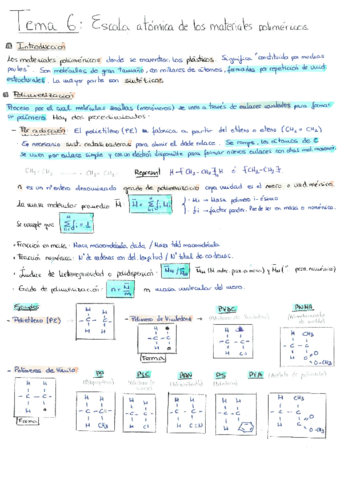 Tema 6: Escala atómica de los materiales poliméricos
Introducción
Los materiales poliméricos donde se encuentran los plásticos. Significa "constituido por muchas
partes". Son moléculas de gran tamaño, en millares de átomos, formadas por repetición de unid.
estructurales. La mayor parte son sintéticos.
Polimerización
Proceso por el cual moléculas simples (monómeros) se unen a través de enlaces covalentes para formar
un polímero. Hay dos procedimientos:
- Por adición: El polietileno (PE) se fabrica a partir del etileno o eteno (CH2 = CH2)
Es necesario sust. catalizadoras para abrir el doble enlace. Se rompe, los átomos de C
se unen por enlace simple y con un electrón disponible para formar nuevos enlaces con otras moléculas
CH2-CH2 ... CH2-CH2 Represent H-[CH2-CH2]n-H ó [CH2-CH2]n
n es un número denominado grado de polimerización cuya unidad es el mero o unid. monómera.
La masa molecular promedio
Mi → Masa polímero i-ésimo
fi → factor ponder. Puede ser en masa o numérica.
Se acepta que
- Fracción en masa: Masa macromolécula dada / Masa total macromolécula.
- Fracción numérica: Nº de cadenas con det. longitud / Nº total de cadenas.
- Índice de heterogeneidad o polidispersión:
- Grado de polimerización: n = M/m m masa molecular del mero.
Ejemplos
- Polietileno (PE)
- Polímeros de Vinilideno
PVDC
PMMA
Forma
- Polímeros de Vinilo
PP
PVC
PAN
PS
PVA
Forma